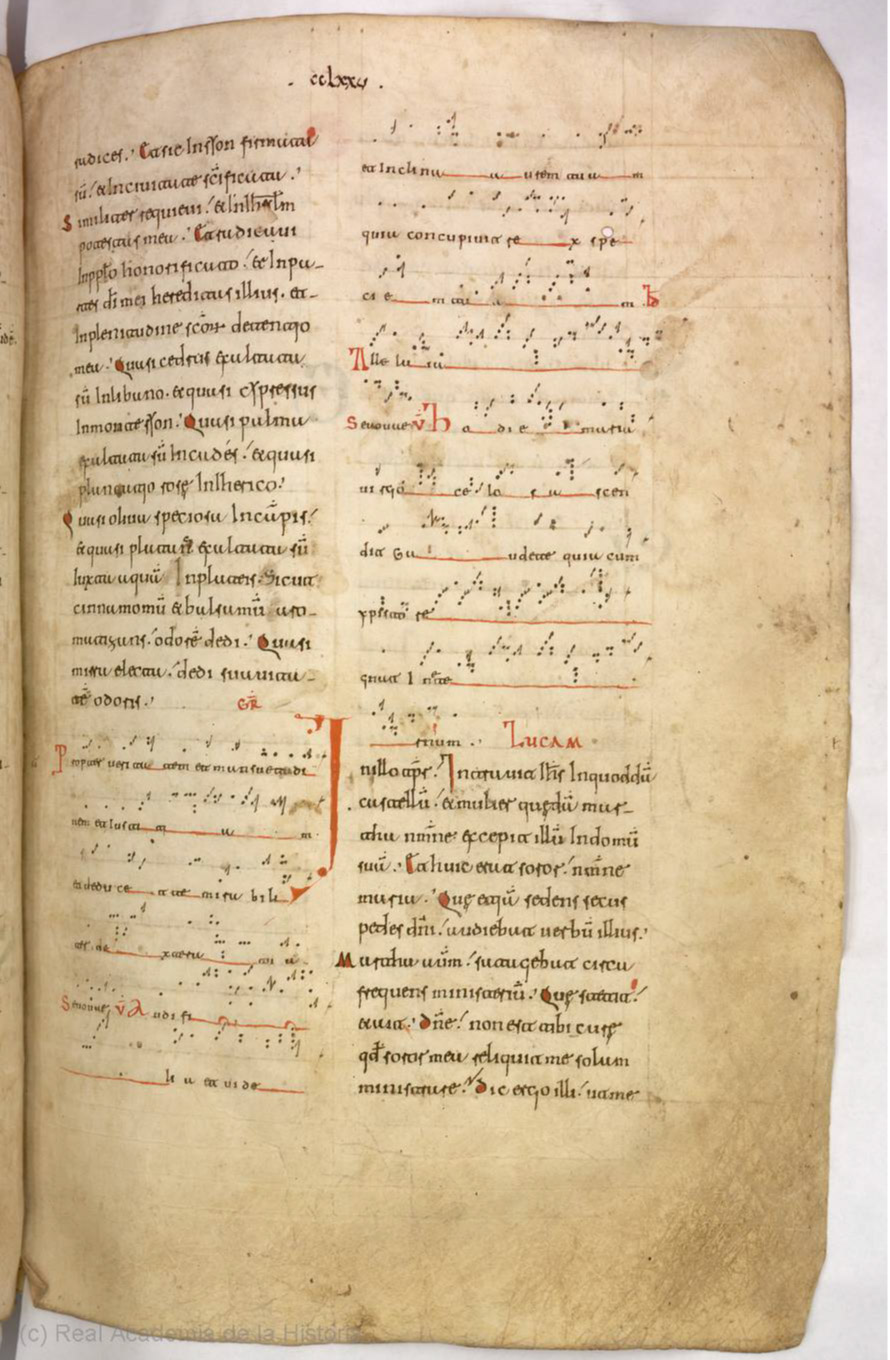 . cclxxv .
radices. Et sic In syon firmata
sū. et In civitate scīficata.
Similiter requievi. et In ihrlm
potestas mea. Et radicavi
In pplo honorificato. et In par-
tes di mei hereditas illius. et-
In plenitudine scōr detentio
mea. Quasi cedrus exaltata
sū In libano. et quasi cypressus
In monte syon. Quasi palma
exaltata sū In cades. et quasi
plantatio rose In iherico.
Quasi oliva speciosa In cāpis.
et quasi platan exaltata sū
iuxta aquā In plateis. Sicut
cinnamomū et balsamū aro-
matizans. odorē dedi. Quasi
mirra electa. dedi suavita-
tē odoris. GR
Propter veri ta tem et mansuetudi
nem et iusti ci a m
et deduce t te mira bili
ter de xtera tu a
Seuouae V Audi fi
li a et vide
et Inclina a urem tu a m
quia concupivit re x spe
ci e m tu a m V
Alle lu ia
Seuouae V H o di e maria
virgo ce lo s a scen
dit Ga udete quia cum
xpisto re
gnat I n ete
rnum. LUCAM
In illo tpr. Intravit ihs In quoddā
castellū. et mulier quedā mar-
tha nmne excepit illū In domū
suā. Et huic erat soror. nmne
maria. Que etiā sedens secus
pedes dni. audiebat verbū illius.
Martha aūm. satagebat circa
frequens ministeriū. Que stetit.
et ait. Dne. non est tibi cure
qd soror mea reliquit me solam
ministrare. Dic ergo illi. ut me
(c) Real Academia de la Historia